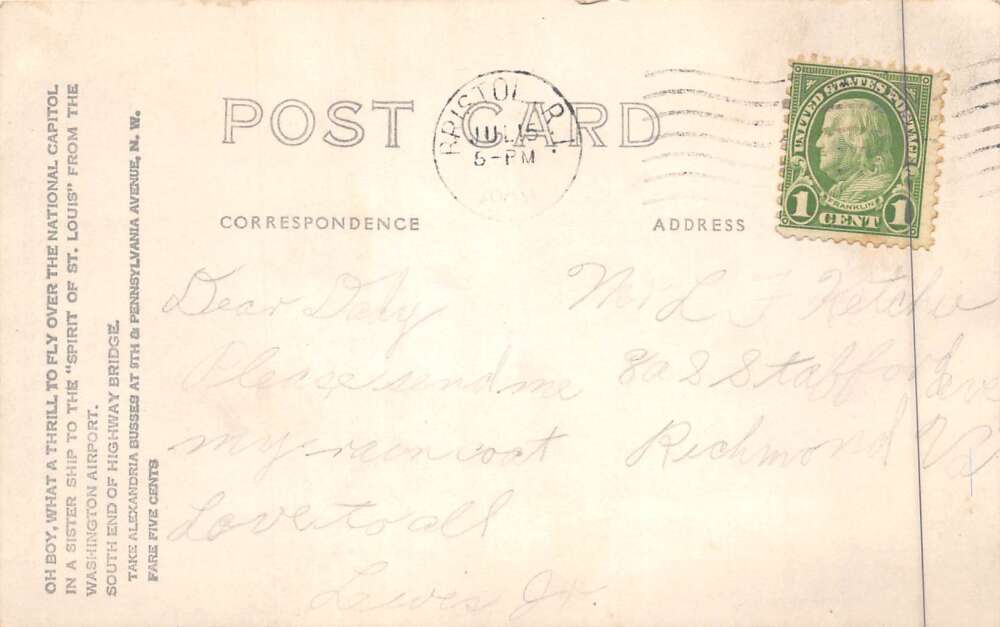 OH BOY, WHAT A THRILL TO FLY OVER THE NATIONAL CAPITOL
IN A SISTER SHIP TO THE "SPIRIT OF ST. LOUIS" FROM THE
WASHINGTON AIRPORT.
SOUTH END OF HIGHWAY BRIDGE.
TAKE ALEXANDRIA BUSSES AT 9TH & PENNSYLVANIA AVENUE, N. W.
FARE FIVE CENTS
POST CARD
BRISTOL, R.I.
JUL 15
5-PM
UNITED STATES POSTAGE
FRANKLIN
1 CENT 1
CORRESPONDENCE
ADDRESS
Dear Daty
Please send me
my raincoat
Love to all
Lewis Jr
Mr L F
S Stafford Ave
Richmond Va